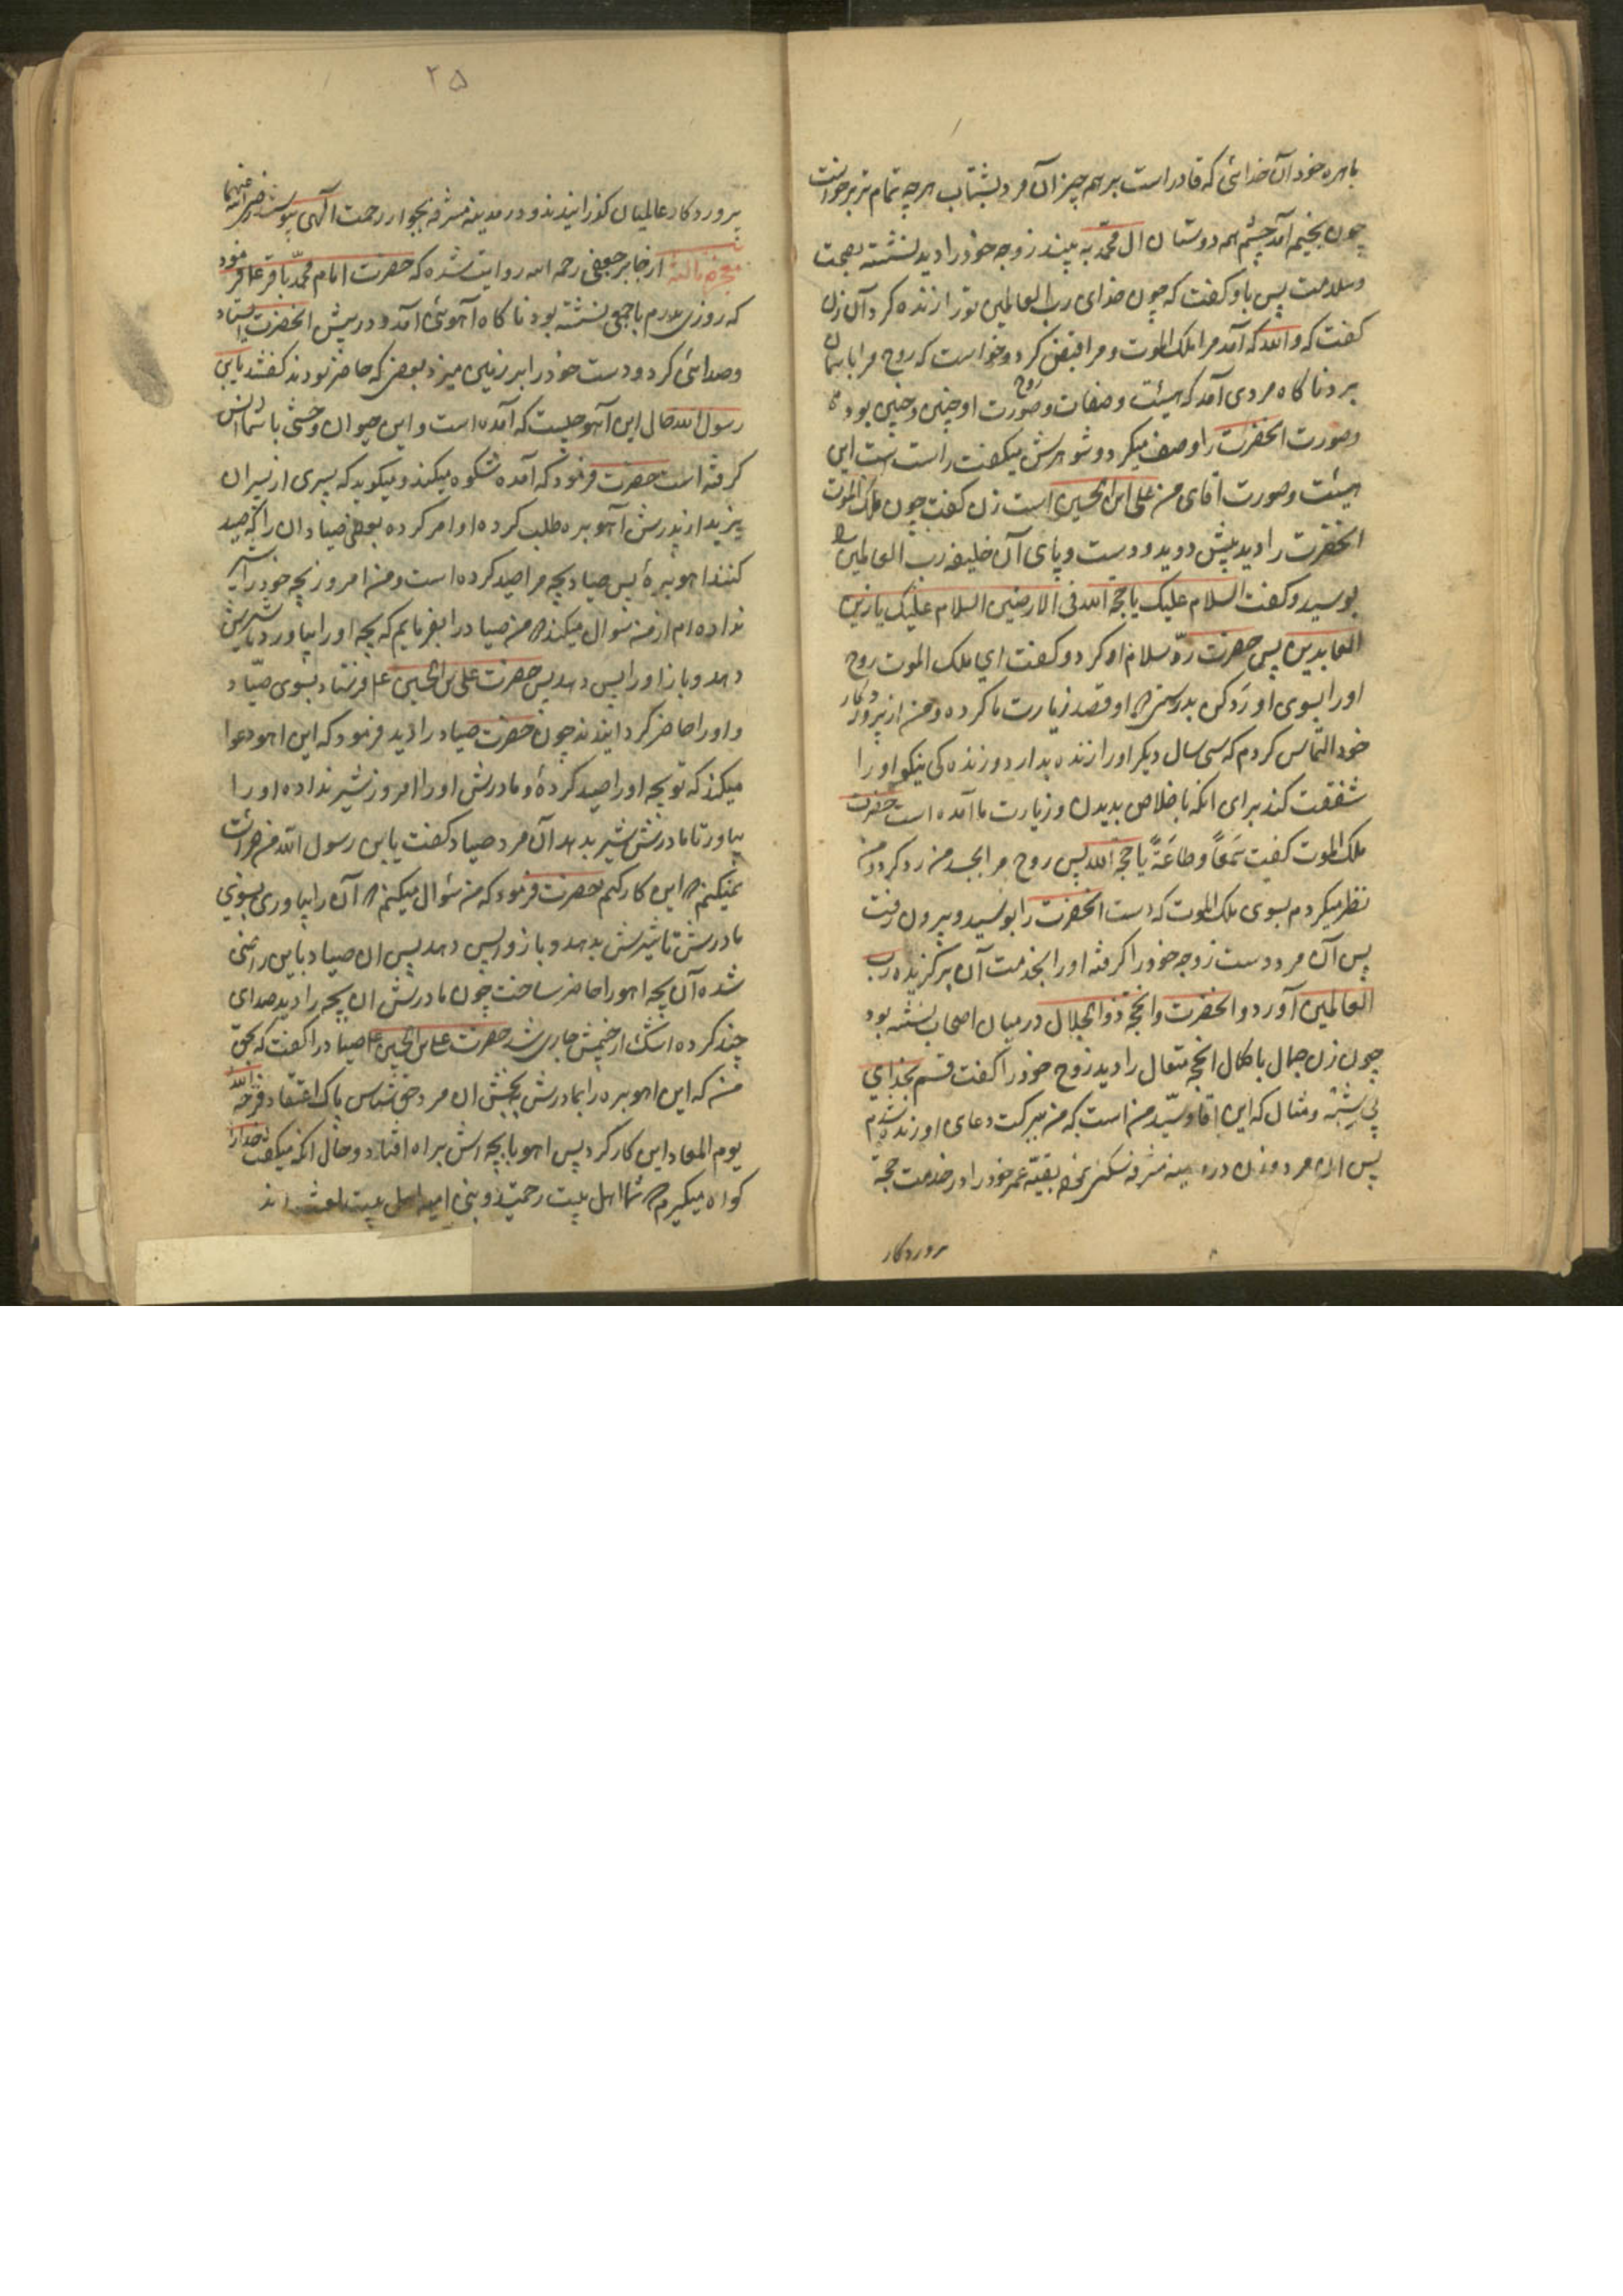 باهره خود آن خدائی که قادر است بر همه چیز آن مرد بشتاب هر چه تمام تر برخواست
چون بخیمه آمد چشم همه دوستان ال محمد به بیند زوجه خود را دید نشسته بصحت
و سلامت پس باو گفت که چون خدای رب العالمین تو را زنده کرد آن زن
گفت که والله که آمد مرا ملک الموت و مرا قبض کرد و خواست که روح مرا باسمان
برد ناکاه مردی آمد که هیئت و صفات و صورت او چنین و چنین بود
و صورت انحضرت را وصف میکرد و شوهرش میکفت راست است این
هیئت و صورت اقای من علی ابن الحسین است زن کفت چون ملک الموت
انحضرت را دید پیش دوید و دست و پای آن خلیفه رب العالمین را
بوسید و کفت السلام علیک یا حجة الله فی الارضین السلام علیک یا زین
العابدین پس حضرت ردّ سلام او کرد و کفت ای ملک الموت روح
او را بسوی او رد کن بدرستی که او قصد زیارت ما کرده و من از پروردکار
خود التماس کردم که سی سال دیکر او را زنده بدارد و زنده کی نیکو او را
شفقت کند برای انکه باخلاص بدیدن و زیارت ما آمده است حضرت
ملک الموت کفت سَمعاً و طاعَةً یا حجة الله پس روح مرا بجسد من رد کرد و من
نظر میکردم بسوی ملک الموت که دست انحضرت را بوسید و بیرون رفت
پس آن مرد دست زوجه خود را کرفته او را بخدمت آن برکزیده رب
العالمین آورد و انحضرت وانحجة ذو الجلال در میان اصحاب نشسته بود
چون زن جمال با کمال انحجة متعال را دید زوج خود را کفت قسم بخدای
بی شِبْه و مثال که این اقا و سیّد من است که من ببرکت دعای او زنده شدم
پس ان مرد و زن در مدینه مشرفه سکنی نموده بقیّه عمر خود را در خدمت حجة
پروردکار
۲۵
پروردکار عالمیان کذرانیدند و در مدینه مشرفه بجوار رحمت الهی پیوستند رضی الله عنهما
معجزه ثالثه از جابر جعفی رحمه الله روایت شده که حضرت امام محمّد باقر ع فرمود
که روزی پدرم با جمعی نشسته بود ناکاه آهوئی آمد و در پیش انحضرت ایستاد
و صدائی کرد و دست خود را بر زمین میزد بعضی که حاضر بودند کفتند یابن
رسول الله حال این آهو چیست که آمده است و این حیوان وحشی با شما انس
کرفته است حضرت فرمود که آمده شکوه میکند و میکوید که پسری از پسران
یزید از پدرش آهو بره طلب کرده او امر کرده بعضی صیادان را که صید
کنند اهو برهٔ پس صیاد بچه مرا صید کرده است و من امروز بچه خود را شیر
نداده ام از من سوال میکند که من صیاد را بفرمایم که بچه او را بیاورد تا شیرش
دهد و باز او را پس دهد پس حضرت علی بن الحسین ع فرستاد بسوی صیّاد
و او را حاضر کردایندند چون حضرت صیاد را دید فرمود که این اهو دعوا
میکند که تو بچه او را صید کردهٔ و مادرش او را امروز شیر نداده او را
بیاور تا مادرش شیر بدهد آن مرد صیاد کفت یابن رسول الله من جرائت
نمیکنم که این کار کنم حضرت فرمود که من سُوال میکنم که آن را بیاوری بسوی
مادرش تا شیرش بدهد و باز واپس دهد پس ان صیاد باین راضی
شده آن بچه اهو را حاضر ساخت چون مادرش ان بچه را دید صدای
چند کرده اشک از چشمش جاری شد حضرت علی بن الحسین ع صیّاد را کفت که بحق
من که این اهو بره را بمادرش بخش ان مرد حق شناس پاک اعتقاد فرحه الله
یوم المعاد این کار کرد پس اهو با بچه اش براه افتاد و حال انکه میکفت خدا را
کواه میکیرم که شما اهل بیت رحمتید و بنی امیه اهل بیت لعنت اند